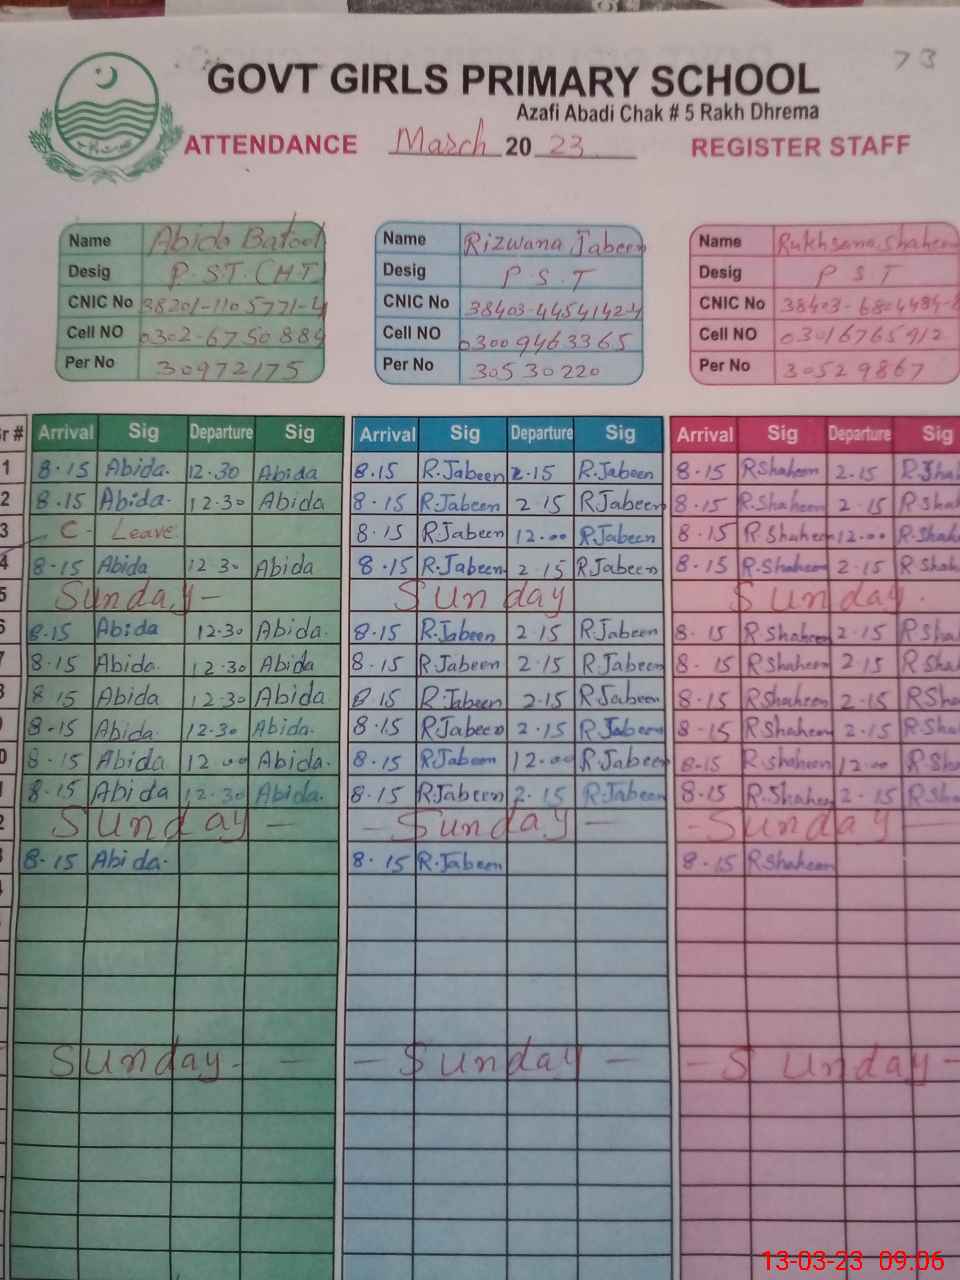 73
GOVT GIRLS PRIMARY SCHOOL
Azafi Abadi Chak # 5 Rakh Dhrema
ATTENDANCE March 20 23 REGISTER STAFF
Name Abida Batool Name Rizwana Jabeen Name Rukhsana Shaheen
Desig P.S.T.(H.T Desig P.S.T Desig P S T
CNIC No 38201-1105771-4 CNIC No 38403-4454142-4 CNIC No 38403-6804484-
Cell NO 0302-6750884 Cell NO 03009463365 Cell NO 03016765912
Per No 30972175 Per No 30530220 Per No 30529867
r # Arrival Sig Departure Sig Arrival Sig Departure Sig Arrival Sig Departure Sig
1 8.15 Abida. 12.30 Abida 8.15 R.Jabeen 2.15 R.Jabeen 8.15 R Shaheen 2.15 R.Sha
2 8.15 Abida. 12.30 Abida 8.15 R.Jabeen 2 15 R Jabeen 8.15 R.Shaheen 2.15 R Sha
3 C- Leave 8.15 R.Jabeen 12.00 R.Jabeen 8.15 R.Shaheen 12.00 R.Sha
4 8.15 Abida 12.30 Abida 8.15 R.Jabeen 2 15 R Jabeen 8.15 R.Shaheen 2.15 R Sha
5 Sunday - Sunday Sunday.
6 8.15 Abida 12.30 Abida. 8.15 R.Jabeen 2.15 R.Jabeen 8.15 R Shaheen 2.15 R Sha
7 8.15 Abida. 12.30 Abida 8.15 R Jabeen 2.15 R.Jabeen 8.15 R Shaheen 2.15 R Sha
8 15 Abida 12.30 Abida 8.15 R.Jabeen 2.15 R.Jabeen 8.15 R Shaheen 2.15 R Sha
8.15 Abida. 12.30 Abida. 8.15 R.Jabeen 2.15 R.Jabeen 8.15 R Shaheen 2.15 R.Sha
0 8.15 Abida 12 00 Abida. 8.15 R.Jabeen 12.00 R.Jabeen 8.15 R.shaheen 12.00 R Sha
8.15 Abida 12.30 Abida. 8.15 R.Jabeen 2.15 R.Jabeen 8.15 R.Shaheen 2.15 R Sha
2 Sunday - - Sunday - - Sunday -
8.15 Abida. 8.15 R.Jabeen 8.15 R Shaheen
Sunday - - - Sunday - - Sunday -
13-03-23 09:06